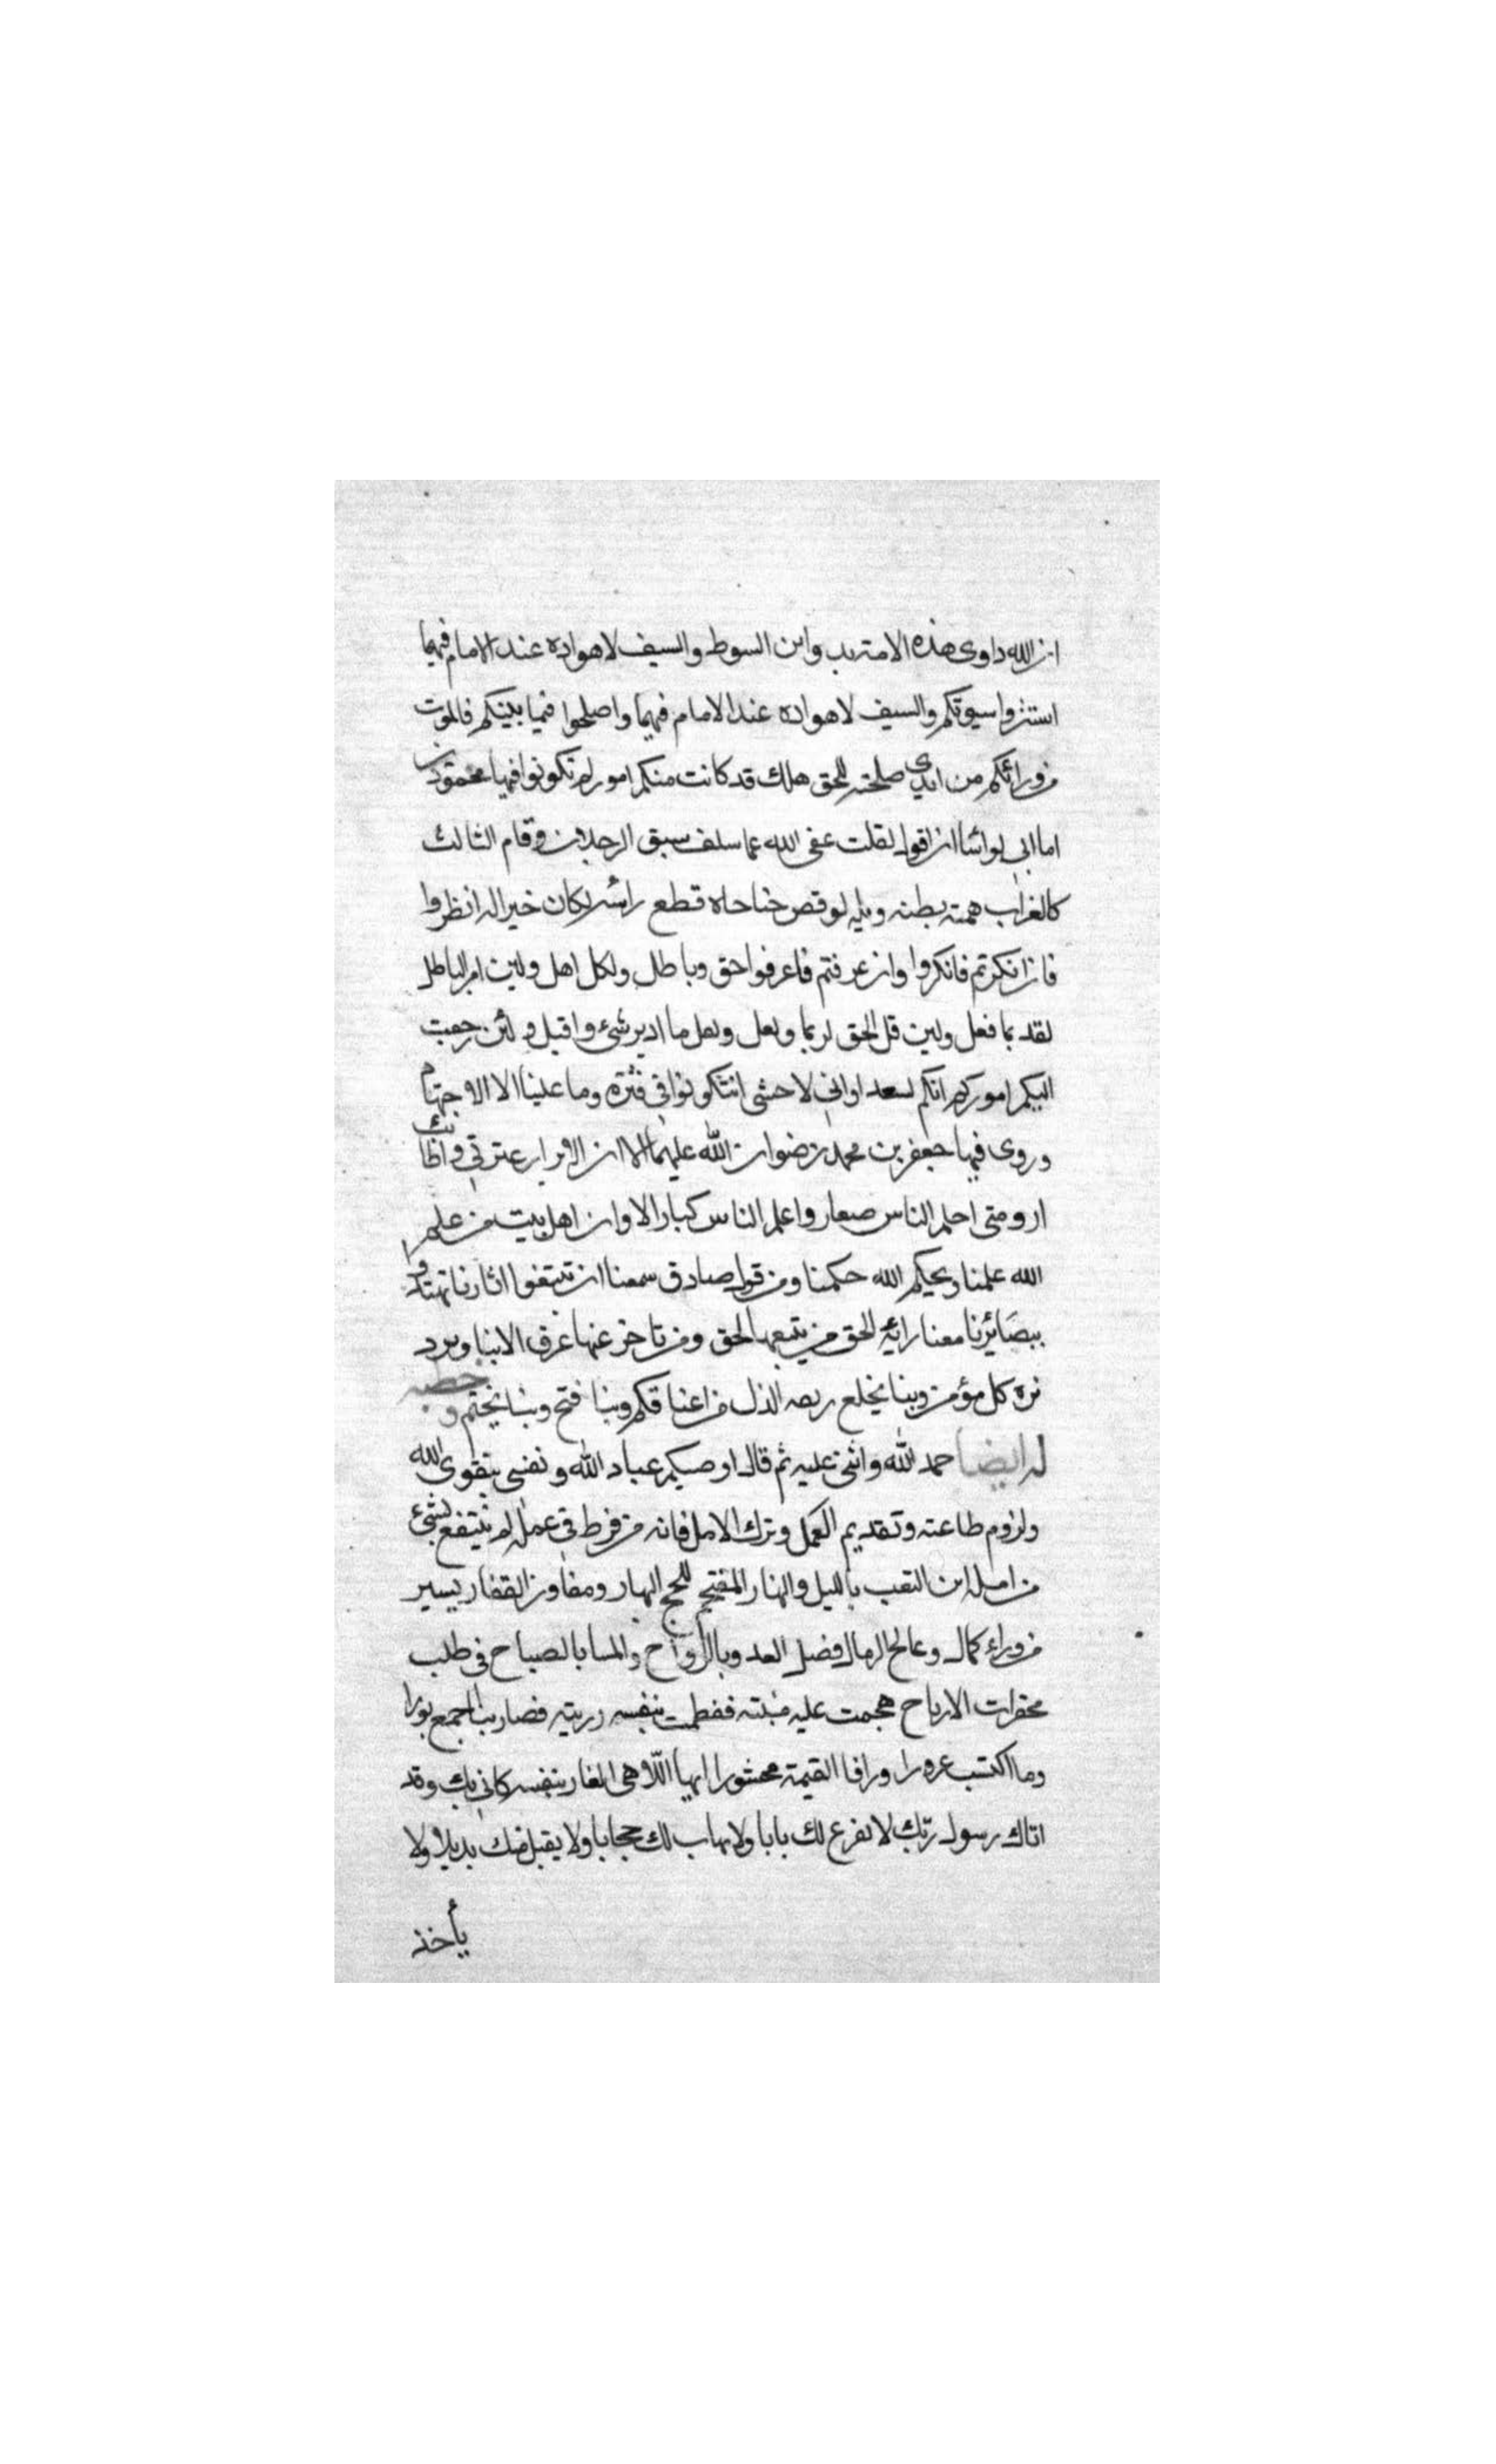 ان الله داوى هذه الامة بدواين السوط والسيف لا هواده عند الامام فيهما
استتروا بيوتكم والسيف لا هواده عند الامام فيهما واصلحوا فيما بينكم فالموت
من ورائكم من ابدى صفحته للحق هلك قد كانت منكم امور لم تكونوا فيها محمودين
اما انى لو اشا ان اقول لقلت عفى الله عما سلف سبق الرجلان وقام الثالث
كالغراب همته بطنه ويله لو قص جناحاه قطع راسه لكان خيرا له انظروا
فان انكرتم فانكروا وان عرفتم فاعرفوا حق وباطل ولكل اهل ولين امر الباطل
لقديما فعل ولين قل الحق لربما ولعل ولعل ما ادبر شئ واقبل ولئن رجعت
اليكم اموركم انكم لسعدا وانى لاخشى ان تكونوا فى فترة وما علينا الا الاجتهاد
وروى فيها جعفر بن محمد رضوان الله عليهما الا ان الابرار عترتى واطائب
ارومتى احلم الناس صغار واعلم الناس كبار الا وان اهل بيت من علم
الله علمنا وبحكم الله حكمنا ومن قول صادق سمعنا ان تتبعوا اثارنا تهتدوا
ببصائرنا معنا راية الحق من يتبعها لحق ومن تاخر عنها غرق الا بنا ويرد
تره كل مؤمن وبنا يخلع ربقه الذل من اعناقكم وبنا فتح وبنا يختم وخطبه
له ايضا حمد الله واثنى عليه ثم قال اوصيكم عباد الله ونفسى بتقوى الله
ولزوم طاعته وتقديم العمل وترك الامل فانه من فرط فى عمله لم ينتفع بشئ
من امله اين التعب بالليل والنهار المقتحم للجج البحار ومفاوز القفار يسير
من وراء كمال وعالج الرمال فضل الغد وبالرواح والمسا بالصباح فى طلب
محقرات الارباح هجمت عليه منيته فعظمت بنفسه رزيته فصار بما جمع بورا
وما اكتسب غرورا ووافا القيمة محشورا ايها اللاهى الغار بنفسه كانى بك وقد
اتاك رسول ربك لا يقرع لك بابا ولا يهاب لك حجابا ولا يقبل منك بديلا ولا
يأخذ